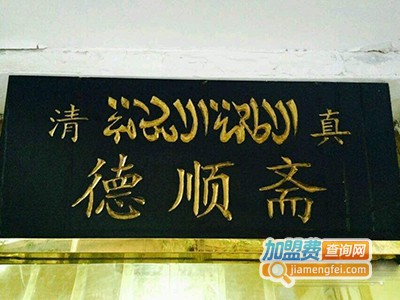 清 真
德顺斋
加盟费查询网
jiamengfei.com